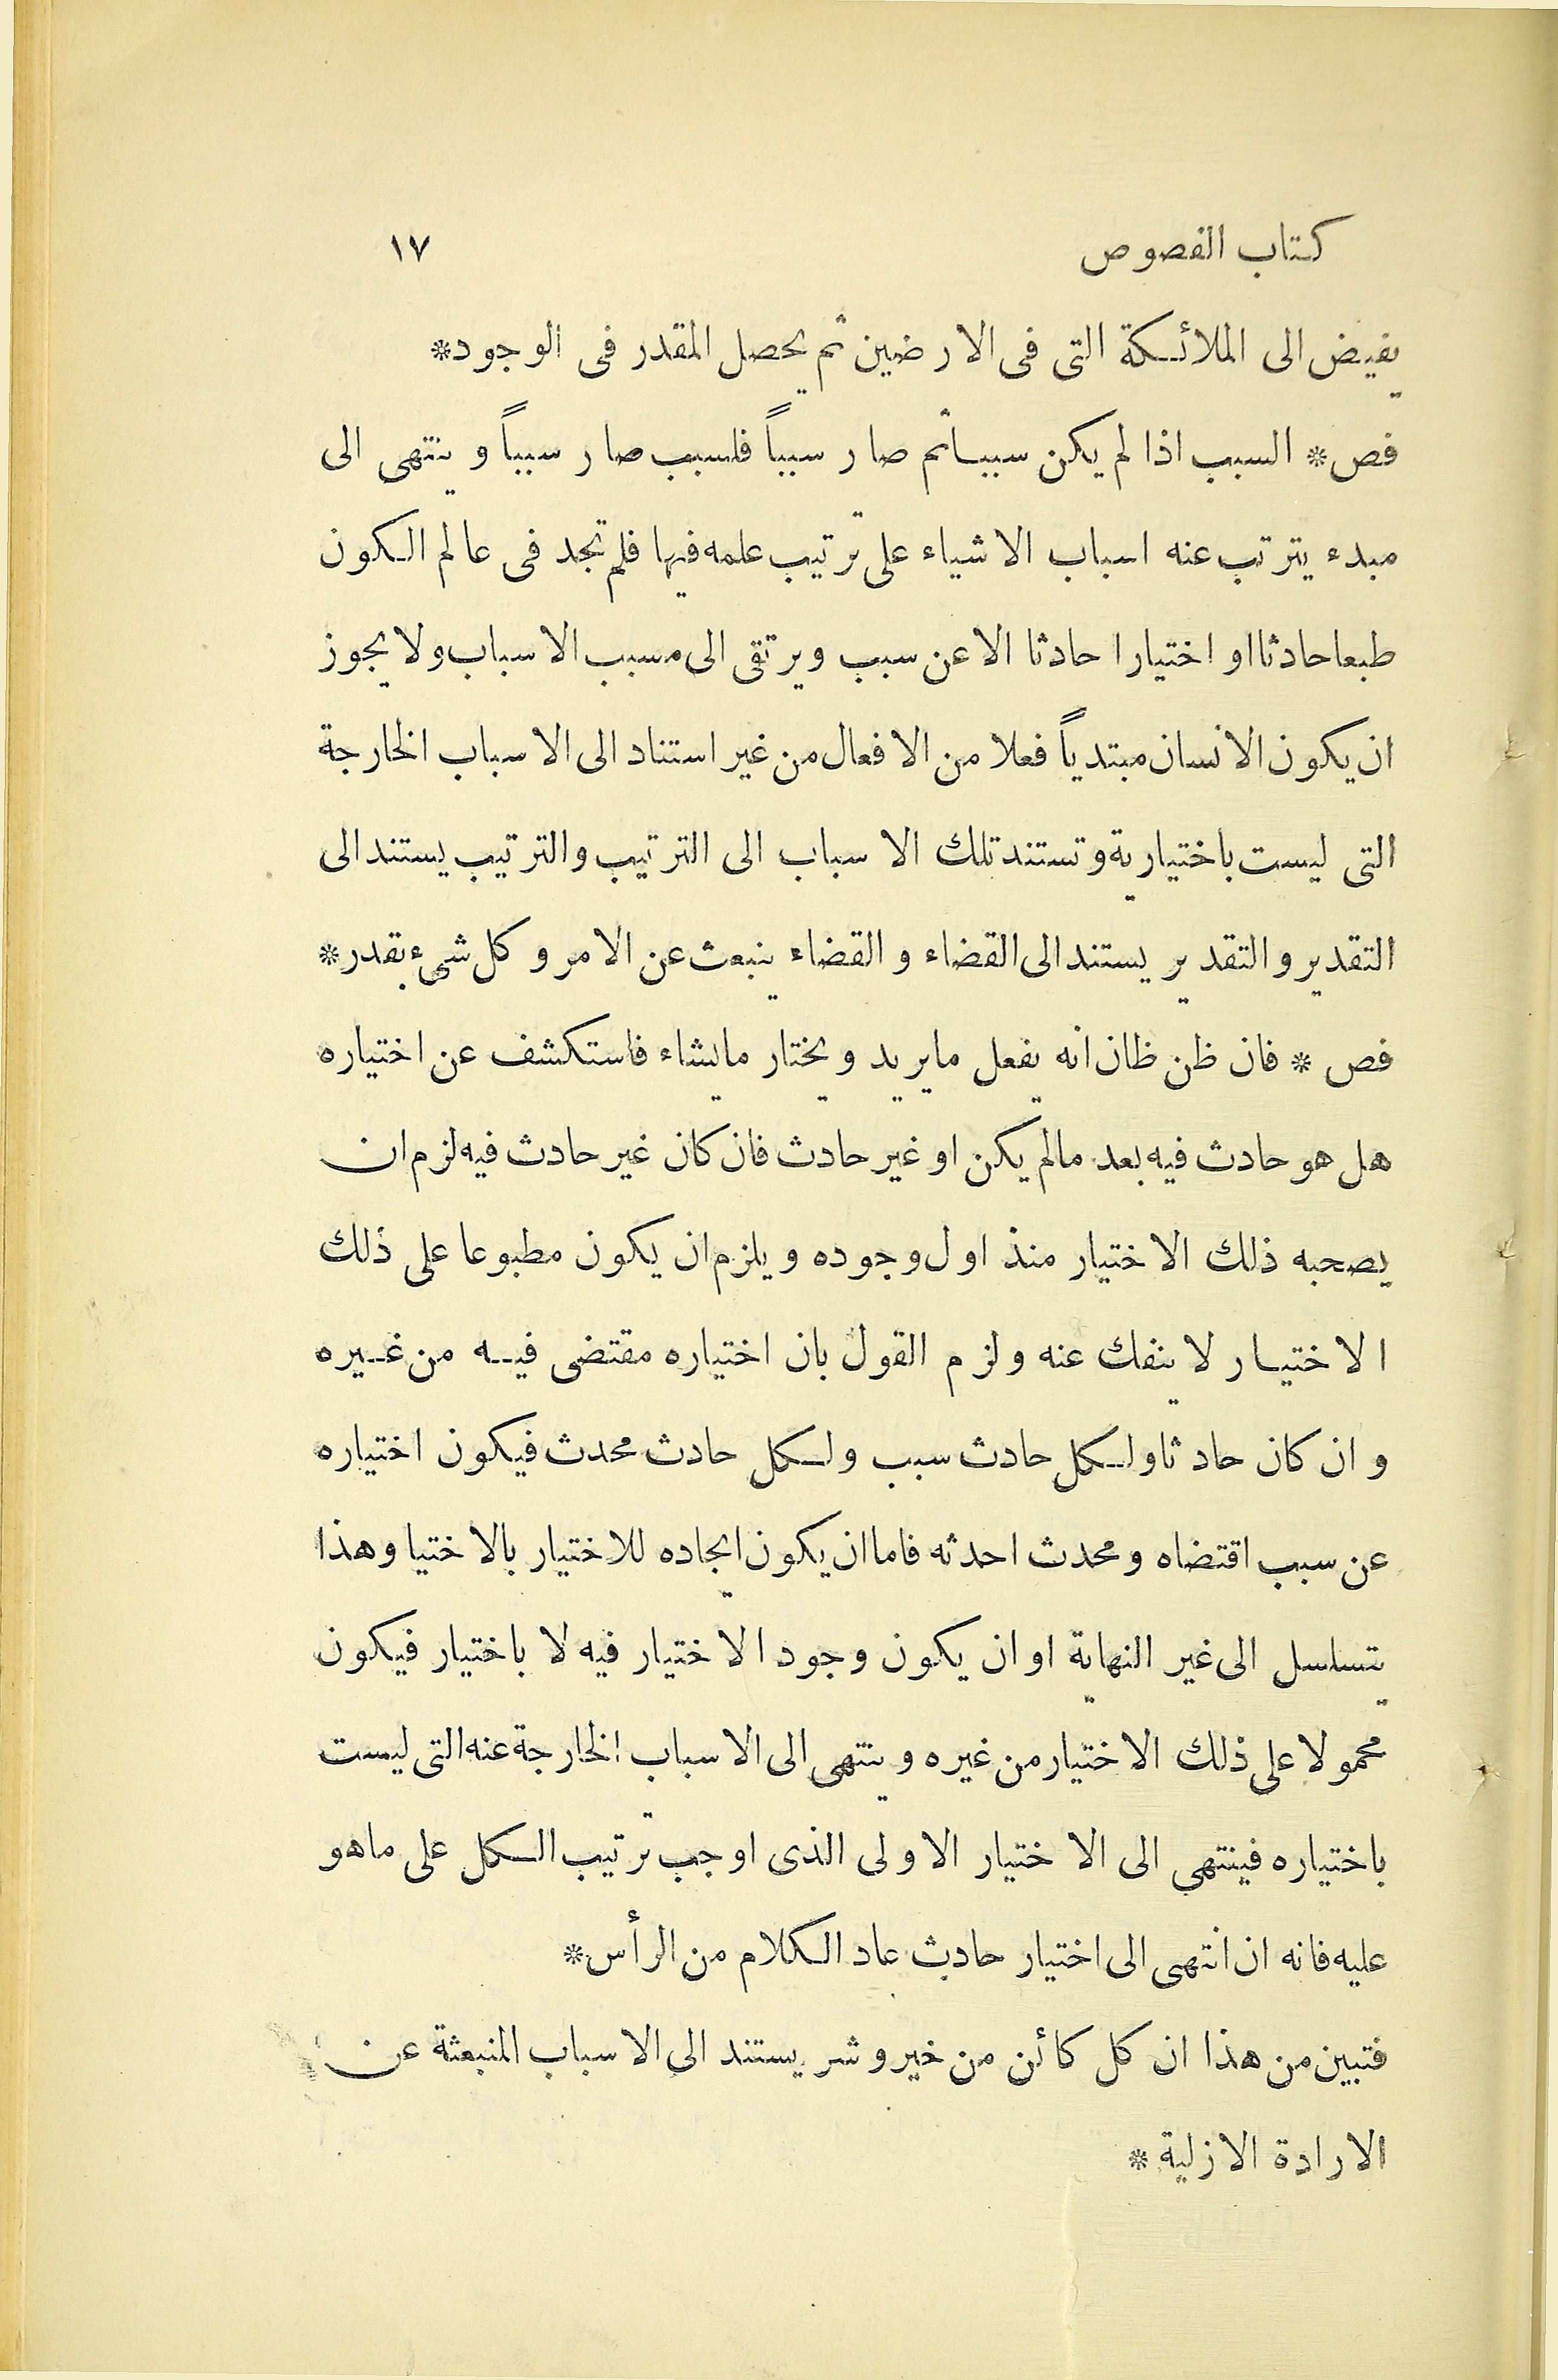 كتاب الفصوص ١٧
يفيض الى الملائكة التى فى الارضين ثم يحصل المقدر فى الوجود*
فص* السبب اذا لم يكن سببا ثم صار سبباً فلسبب صار سبباً وينتهى الى
مبدء يترتب عنه اسباب الاشياء على ترتيب علمه فيها فلم تجد فى عالم الكون
طبعا حادثا او اختيارا حادثا الا عن سبب ويرتقى الى مسبب الاسباب ولا يجوز
ان يكون الانسان مبتدياً فعلا من الافعال من غير استناد الى الاسباب الخارجة
التى ليست باختيارية وتستند تلك الاسباب الى الترتيب والترتيب يستند الى
التقدير والتقدير يستند الى القضاء والقضاء ينبعث عن الامر وكل شىء بقدر*
فص * فان ظن ظان انه يفعل ما يريد ويختار ما يشاء فاستكشف عن اختياره
هل هو حادث فيه بعد ما لم يكن او غير حادث فان كان غير حادث فيه لزم ان
يصحبه ذلك الاختيار منذ اول وجوده ويلزم ان يكون مطبوعا على ذلك
الاختيار لا ينفك عنه ولزم القول بان اختياره مقتضى فيه من غيره
وان كان حادثا ولكل حادث سبب ولكل حادث محدث فيكون اختياره
عن سبب اقتضاه ومحدث احدثه فاما ان يكون ايجاده للاختيار بالاختيا وهذا
يتساسل الى غير النهاية او ان يكون وجود الاختيار فيه لا باختيار فيكون
محمولا على ذلك الاختيار من غيره وينتهى الى الاسباب الخارجة عنه التى ليست
باختياره فينتهى الى الاختيار الاولى الذى اوجب ترتيب الكل على ما هو
عليه فانه ان انتهى الى اختيار حادث عاد الكلام من الرأس*
فتبين من هذا ان كل كائن من خير وشر يستند الى الاسباب المنبعثة عن
الارادة الازلية *